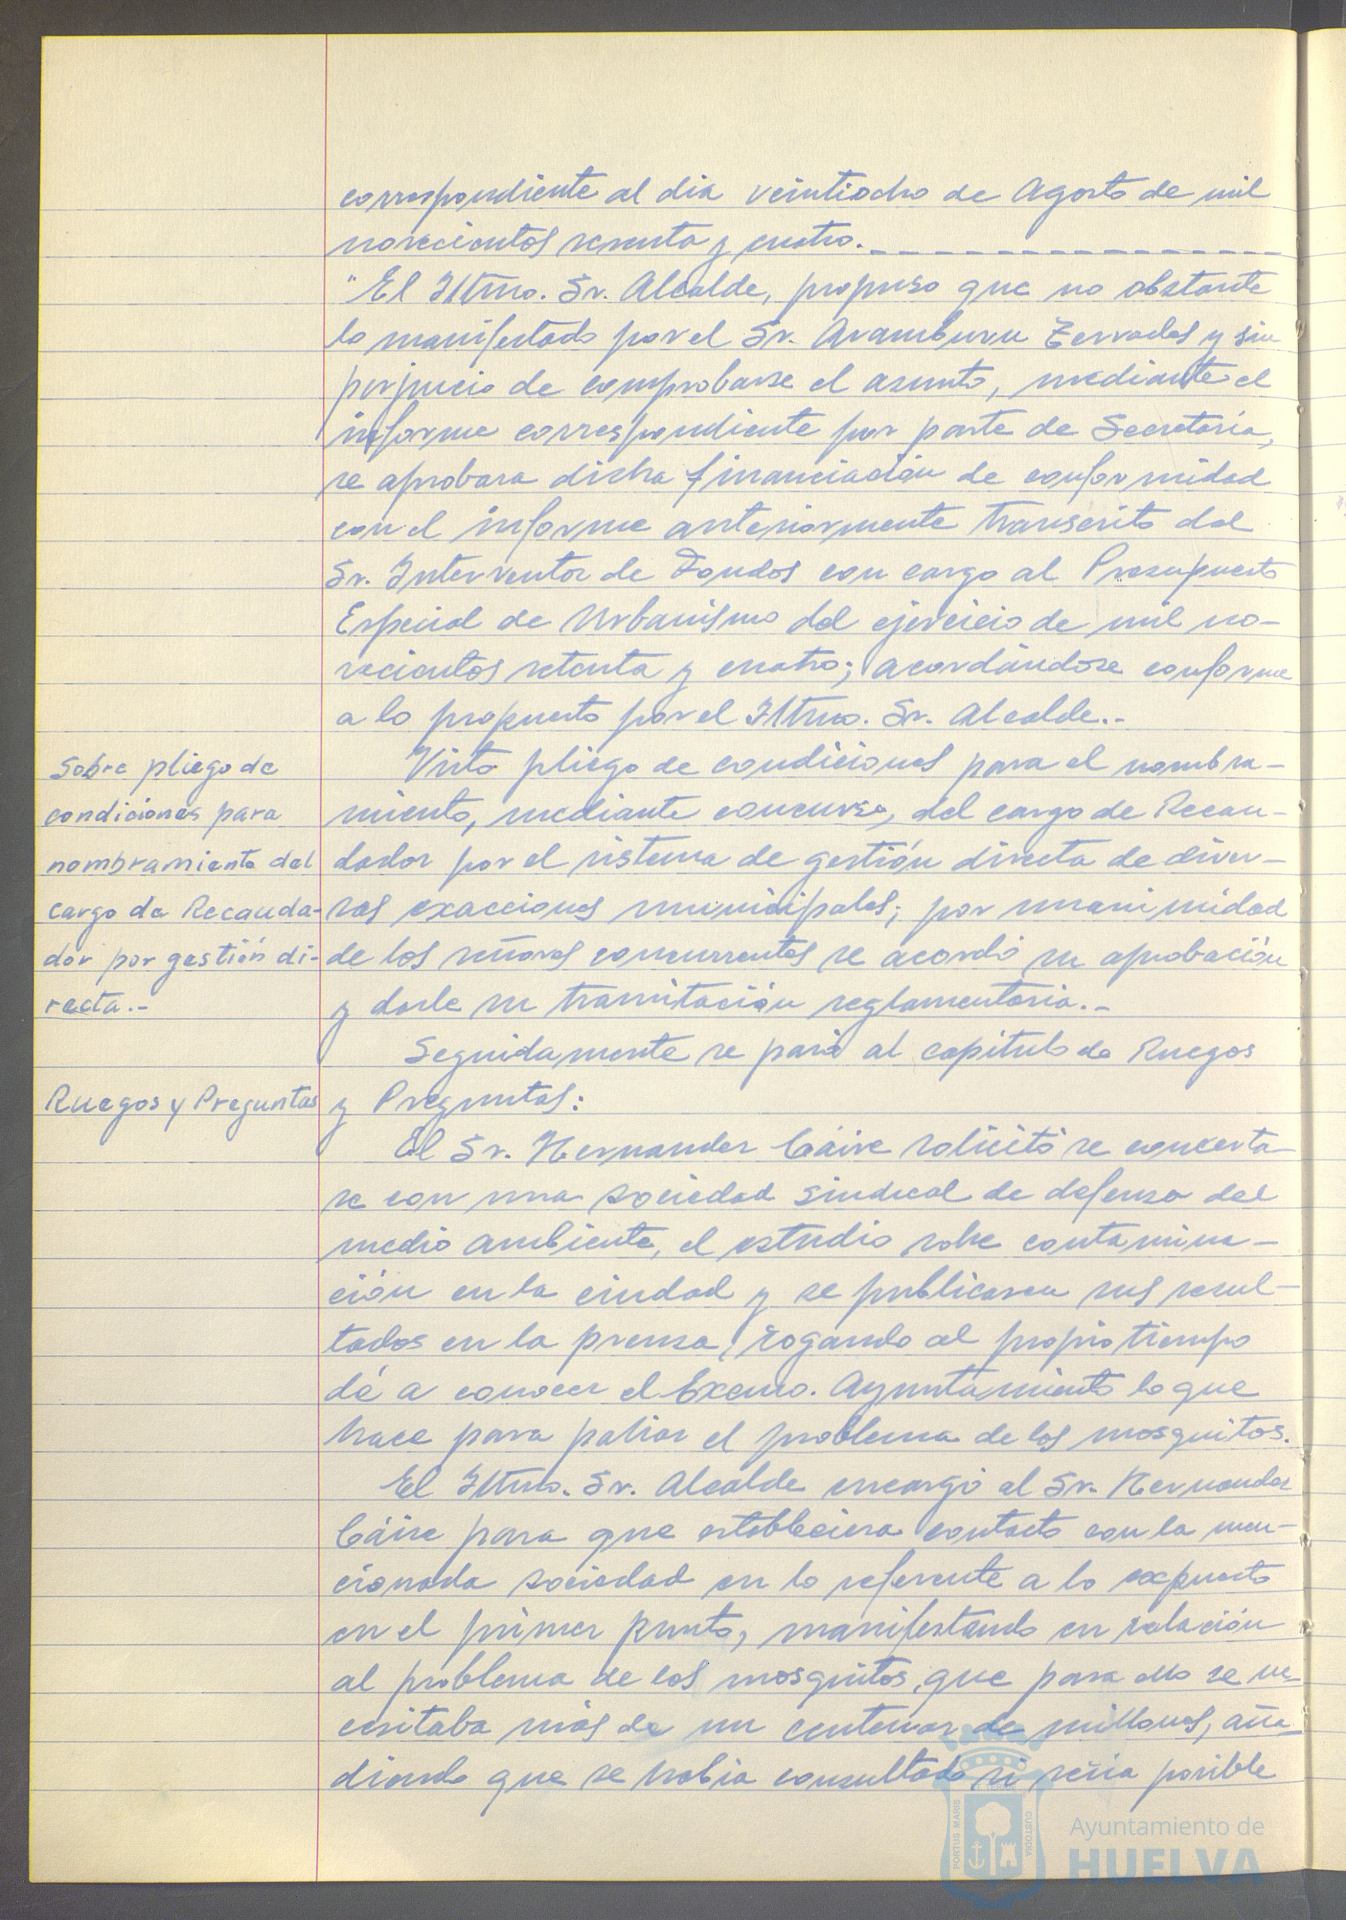 correspondiente al dia veintiocho de Agosto de mil
novecientos sesenta y cuatro.
"El Iltmo. Sr. Alcalde, propuso que no obstante
lo manifestado por el Sr. Aramburu Terrades y sin
perjucio de comprobarse el asunto, mediante el
informe correspondiente por parte de Secretaría,
se aprobara dicha financiación de conformidad
con el informe anteriormente transcrito del
Sr. Interventor de Fondos con cargo al Presupuesto
Especial de Urbanismo del ejercicio de mil no-
vecientos setenta y cuatro; acordándose conforme
a lo propuesto por el Iltmo. Sr. Alcalde.-
Sobre pliego de
condiciones para
nombramiento del
cargo de Recauda-
dor por gestión di-
recta.-
Visto pliego de condiciones para el nombra-
miento, mediante concurso, del cargo de Recau-
dador por el sistema de gestión directa de diver-
sas exacciones municipales; por unanimidad
de los señores concurrentes se acordó su aprobación
y darle su tramitación reglamentaria.-
Seguidamente se pasó al capítulo de Ruegos
Ruegos y Preguntas
y Preguntas:
El Sr. Hernandez Cáire solicitó se concerta-
se con una sociedad sindical de defensa del
medio ambiente, el estudio sobre contamina-
ción en la ciudad y se publicasen sus resul-
tados en la prensa, rogando al propio tiempo
dé a conocer el Excmo. Ayuntamiento lo que
hace para paliar el problema de los mosquitos.
El Iltmo. Sr. Alcalde encargó al Sr. Hernandez
Cáire para que estableciera contacto con la men-
cionada sociedad en lo referente a lo expuesto
en el primer punto, manifestando en relación
al problema de los mosquitos, que para ello se ne-
cesitaba más de un centenar de millones, aña-
diendo que se habia consultado si sería posible
PORTUS MARIS
CUSTODIA
Ayuntamiento de
HUELVA